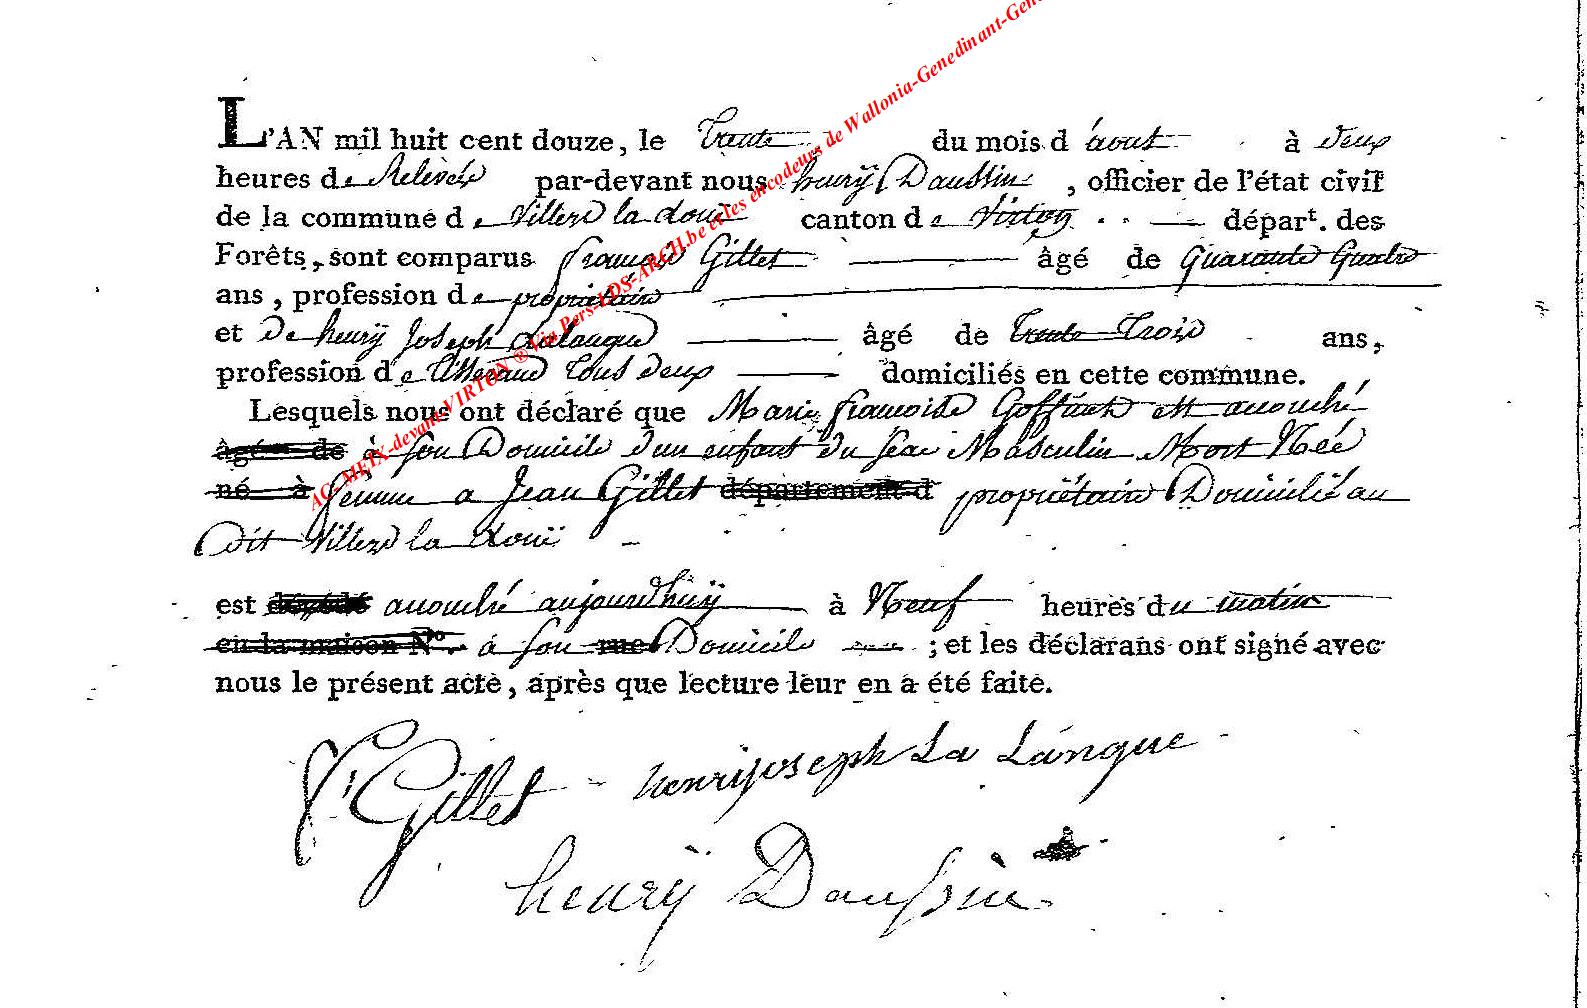 L'AN mil huit cent douze, le Trente du mois d'aout à deux
heures de Relevée par-devant nous henrÿ Daussin, officier de l'état civil
de la commune de Villerd la Loue canton de Virton départ. des
Forêts, sont comparus françois Gillet âgé de Quarante Quatre
ans, profession de propriétaire
et de henrÿ Joseph Lalangue âgé de Trente Trois ans,
profession de Tisserand Tous deux domiciliés en cette commune.
Lesquels nous ont déclaré que Marie françoise Goffinet est accouché
âgé de à son Domicile d'un enfant du sexe Masculin Mort Née
né à femme a Jean Gillet département d propriétaire Domicilié au
dit Villerd la Loue
est décédé accouché aujourdhuÿ à Neuf heures du matin
en la maison N°. à son rue Domicile ; et les déclarans ont signé avec
nous le présent acte, après que lecture leur en a été faite.
f Gillet henrijoseph La Langue
henrÿ Daussin
AC-MEIX-devant-VIRTON ® Via Pers-LDS-ARCH.be et les encodeurs de Wallonia-Genedinant-Gen